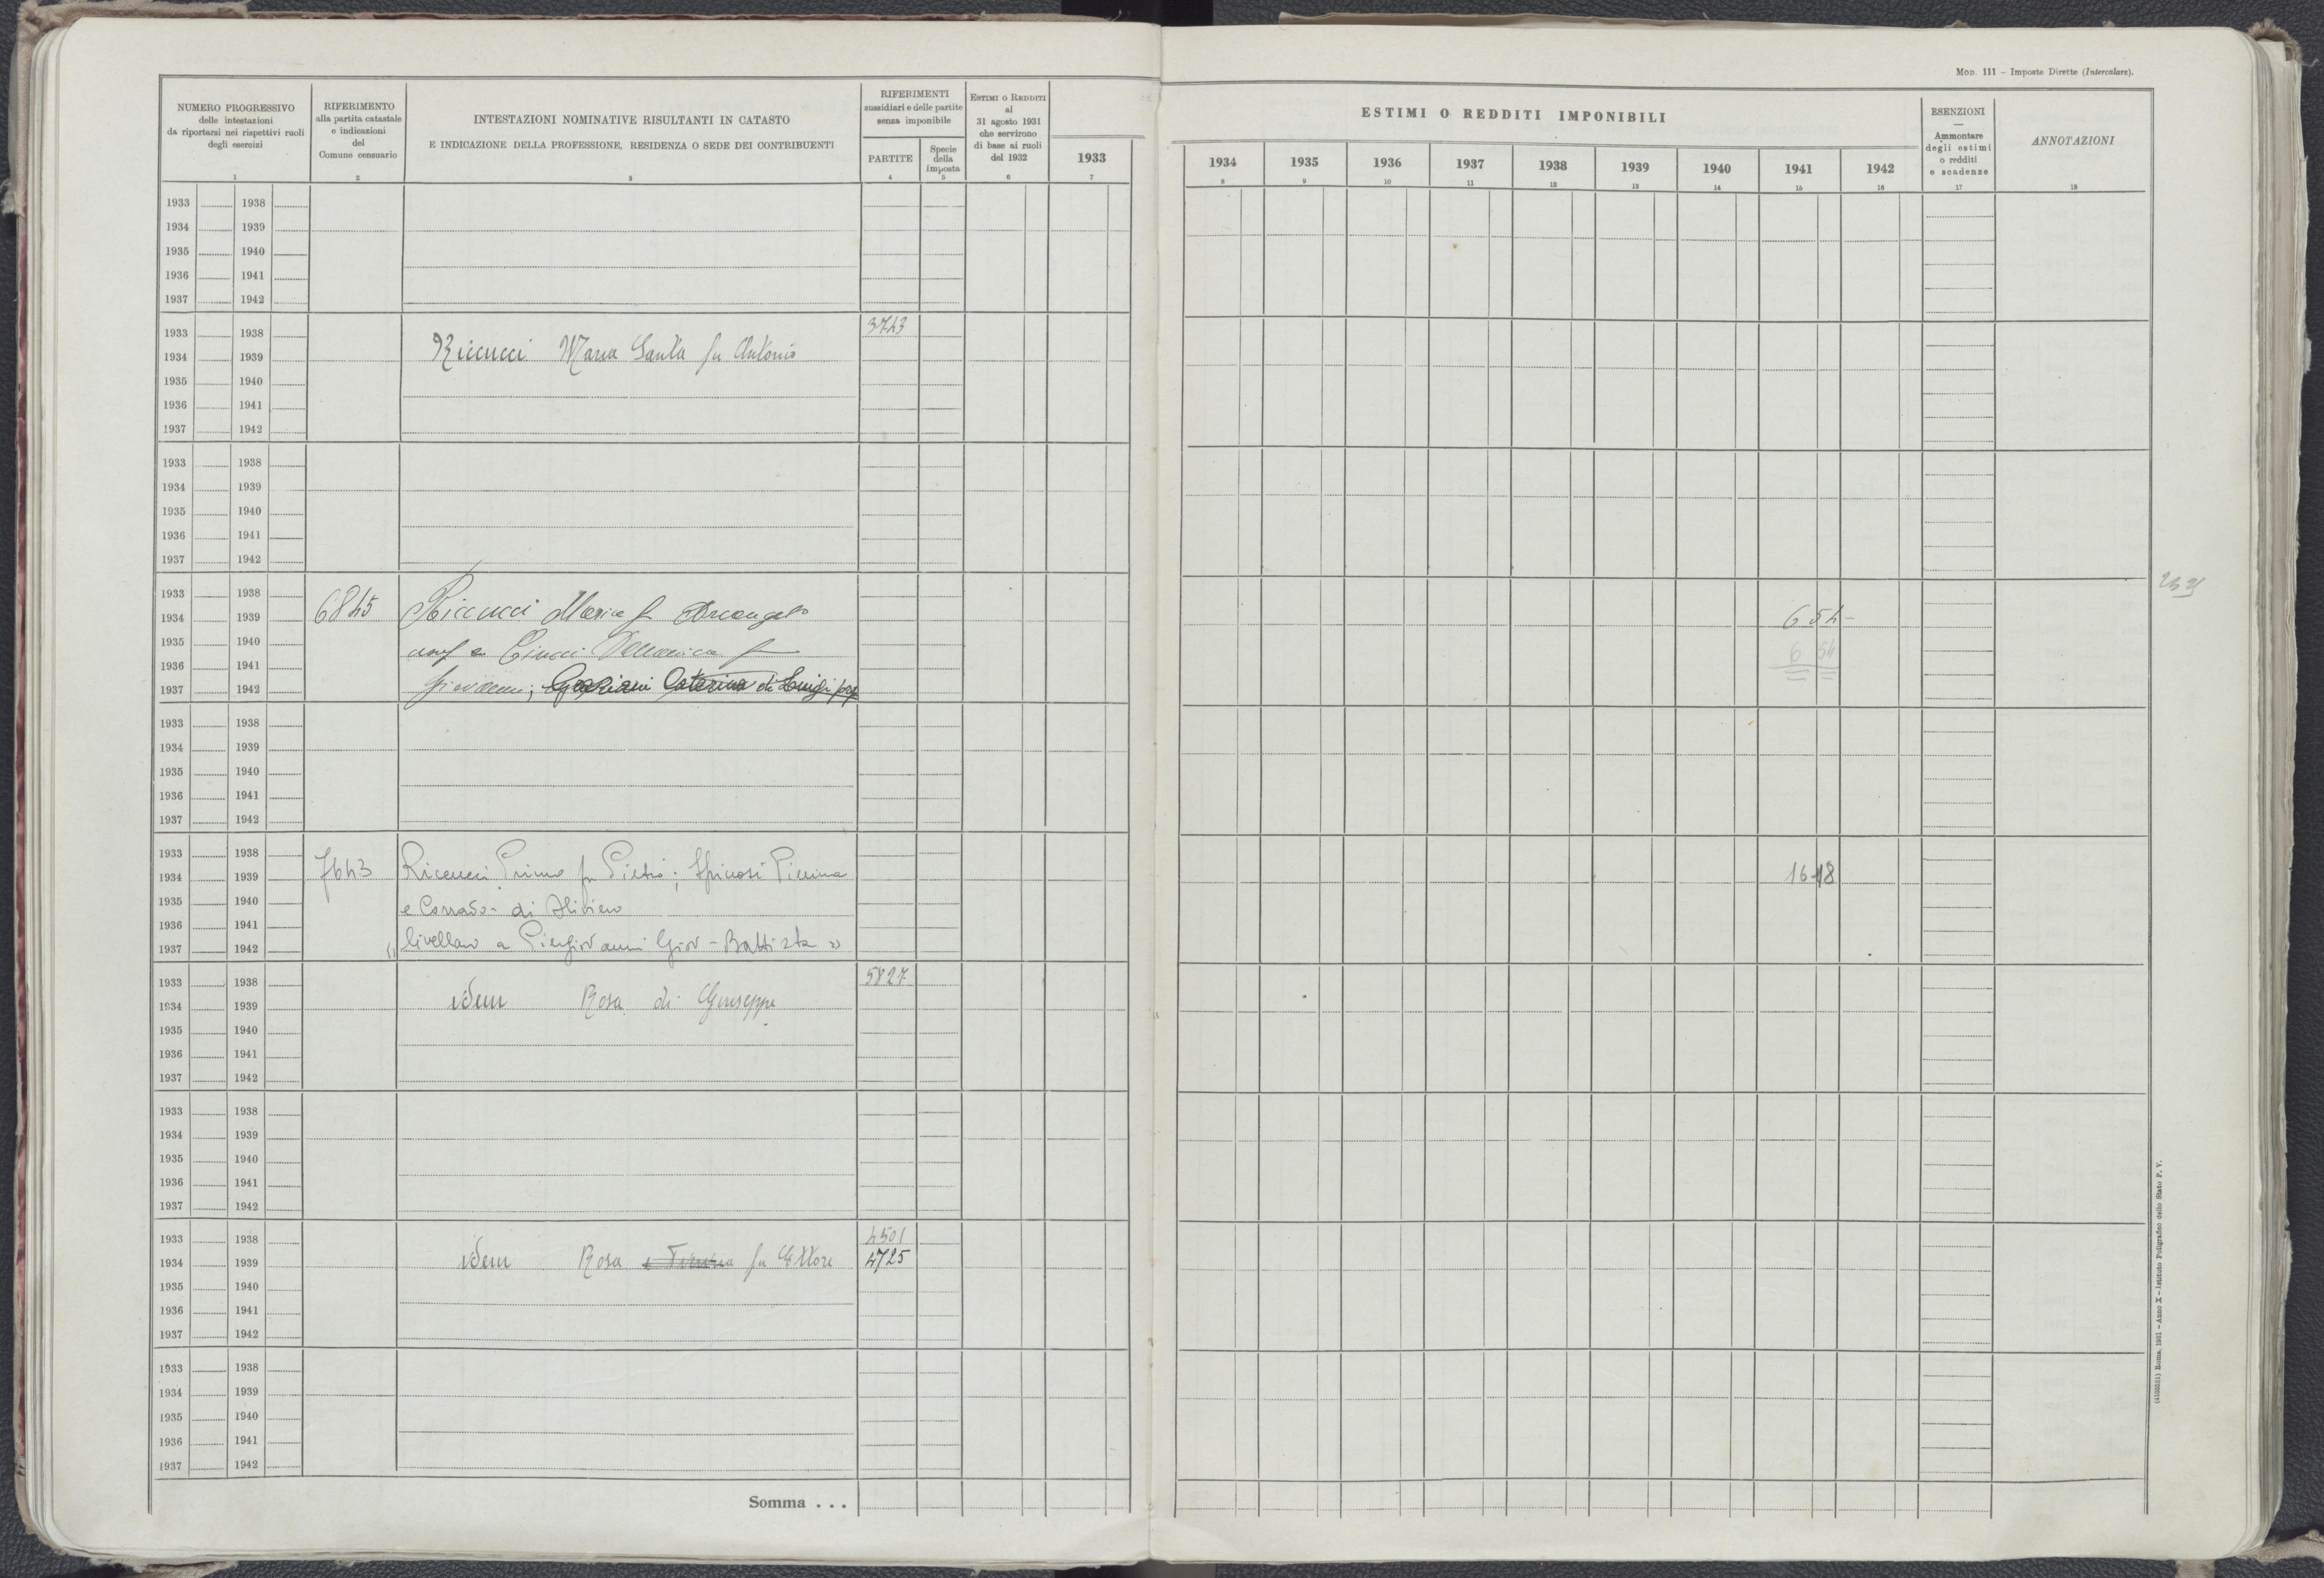 MOD. 111 – Imposte Dirette (Intercalare).
NUMERO PROGRESSIVO
delle intestazioni
da riportarsi nei rispettivi ruoli
degli esercizi
1
RIFERIMENTO
alla partita catastale
e indicazioni
del
Comune censuario
2
INTESTAZIONI NOMINATIVE RISULTANTI IN CATASTO
E INDICAZIONE DELLA PROFESSIONE, RESIDENZA O SEDE DEI CONTRIBUENTI
3
RIFERIMENTI
sussidiari e delle partite
senza imponibile
PARTITE
4
Specie
della
imposta
5
ESTIMI O REDDITI
al
31 agosto 1931
che servirono
di base ai ruoli
del 1932
6
1933
7
ESTIMI O REDDITI IMPONIBILI
1934 1935 1936 1937 1938 1939 1940 1941 1942
8 9 10 11 12 13 14 15 16
ESENZIONI
—
Ammontare
degli estimi
o redditi
e scadenze
17
ANNOTAZIONI
18
1933 1938
1934 1939
1935 1940
1936 1941
1937 1942
1933 1938 3743
1934 1939 Riccucci Maria Santa fu Antonio
1935 1940
1936 1941
1937 1942
1933 1938
1934 1939
1935 1940
1936 1941
1937 1942
1933 1938
1934 1939 6845 Riccucci Maria fu Arcangelo 654-
1935 1940 Domenica fu 6 54
1936 1941
1937 1942 Giovanni; Graziani Caterina di Luigi
1933 1938
1934 1939
1935 1940
1936 1941
1937 1942
1933 1938
1934 1939 7643 Riccucci Primo fu Pietro; Spinosi Pierina 16 18
1935 1940 e Corrado di Oliviero
1936 1941
1937 1942 "livellario a Piergiovanni Giov-Battista"
1933 1938 5827
1934 1939 idem Rosa di Giuseppe
1935 1940
1936 1941
1937 1942
1933 1938
1934 1939
1935 1940
1936 1941
1937 1942
1933 1938 4501
1934 1939 idem Rosa e fu Ettore 4725
1935 1940
1936 1941
1937 1942
1933 1938
1934 1939
1935 1940
1936 1941
1937 1942
Somma . . .
(4102331) Roma, 1931 – Anno X – Istituto Poligrafico dello Stato P. V.